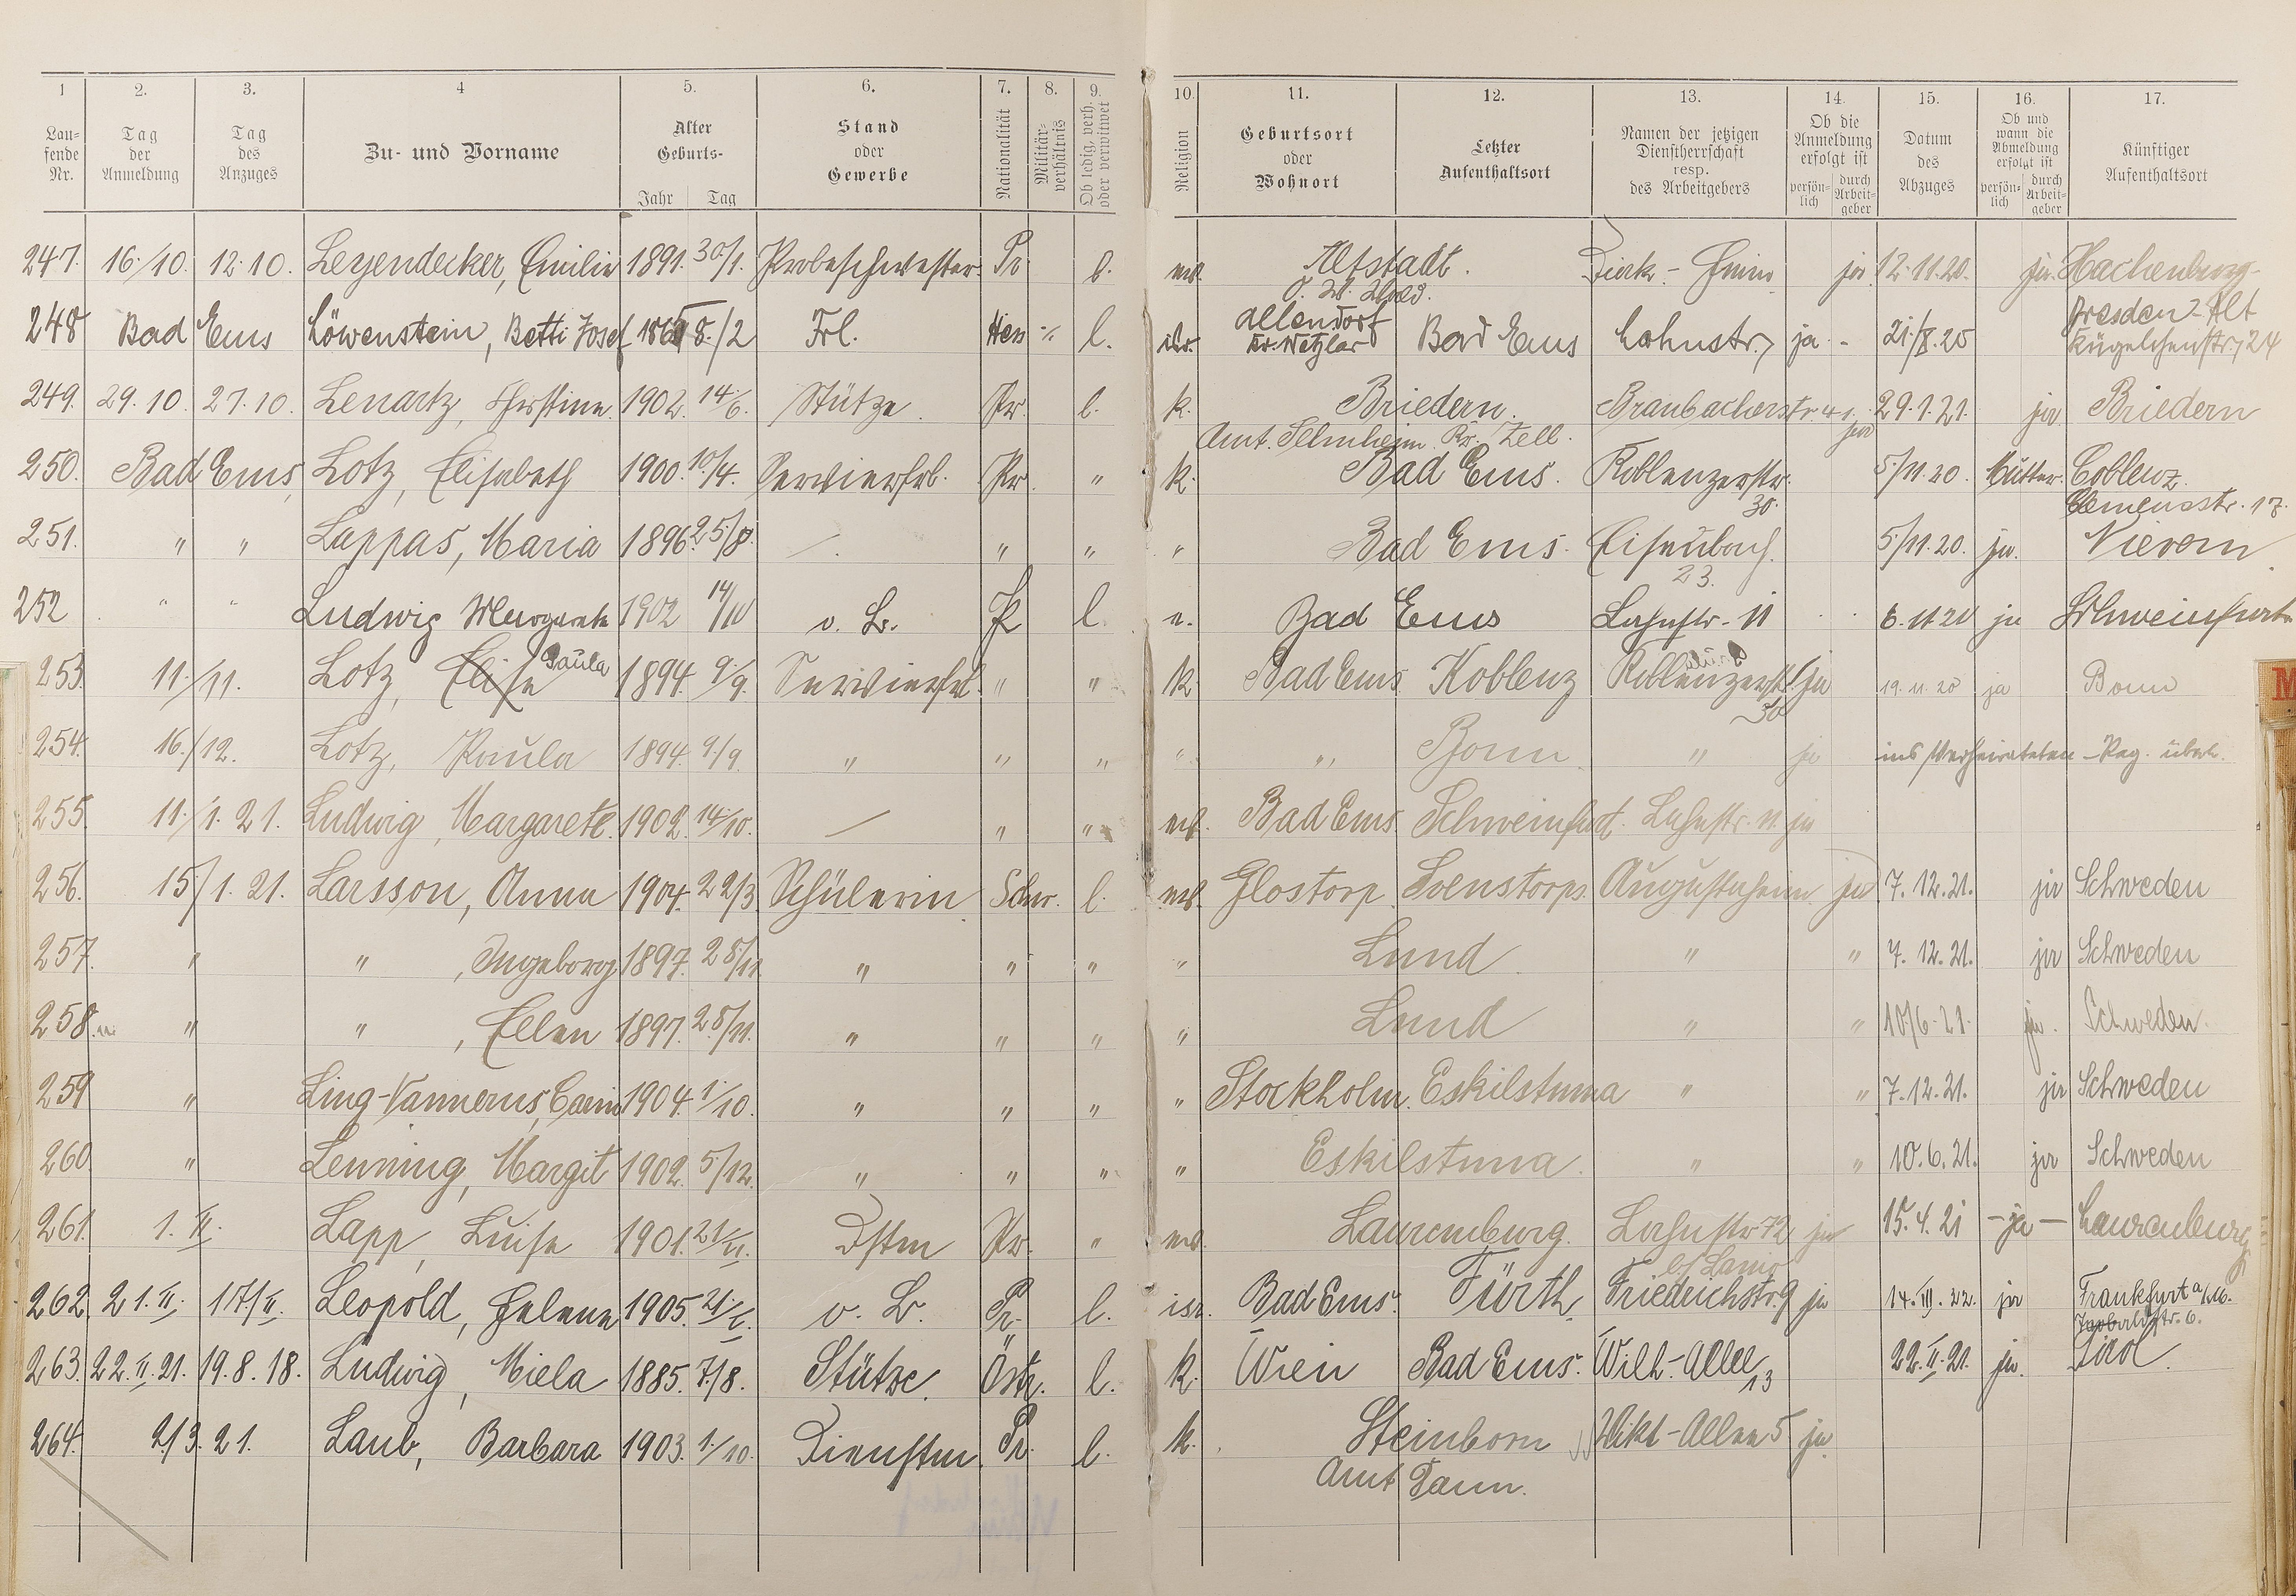 1 2. 3. 4 5. 6. 7. 8. 9. 10. 11. 12. 13. 14. 15. 16. 17.
Lau-
fende
Nr.
Tag
der
Anmeldung
Tag
des
Anzuges
Zu- und Vorname
Alter
Geburts-
Jahr Tag
Stand
oder
Gewerbe
Nationalität
Militär-
verhältnis
Ob ledig, verh.
oder verwitwet
Religion
Geburtsort
oder
Wohnort
Letzter
Aufenthaltsort
Namen der jetzigen
Dienstherrschaft
resp.
des Arbeitgebers
Ob die
Anmeldung
erfolgt ist
persön-
lich
durch
Arbeit-
geber
Datum
des
Abzuges
Ob und
wann die
Abmeldung
erfolgt ist
persön-
lich
durch
Arbeit-
geber
Künftiger
Aufenthaltsort
247. 16./10. 12.10. Leyendecker, Emilie 1891. 30/1. Probeschwester Pr. l. ev. Altstadt. ja 12.11.20. ja. Hachenburg
248 Bad Ems Löwenstein, Betti Josef 8./2 Frl. Hess l. isr. Allendorf Kr. Wetzlar Bad Ems Lahnstr. 7 ja - 21/8.20 Dresden-Alt
Kügelchenstr. 24
249. 29.10. 27.10. Lenartz, Christine 1902. 14/6. Stütze Pr. l. k. Briedern. Braubacherstr. 41. ja 29.1.21. ja Briedern
Amt. Kr. Zell.
250. Bad Ems, Lotz, Elisabeth 1900. 10/4. Servierfrl. Pr. " k. Bad Ems. Koblenzerstr.
30. 5/11.20. Mutter. Coblenz.
Clemensstr. 17.
251. " " Lappas, Maria 1896. 25/8. /. " " " Bad Ems. Eisenbach.
23. 5/11.20. ja. Nievern
252 " " Ludwig Margarete 1902 14/10 o. Br. Pr l. e. Bad Ems Lahnstr. 11 6.11.20 ja Schweinfurt
253. 11./11. Lotz, Elise Paula 1894. 9/9. Servierfrl. " " k. Bad Ems. Koblenz Koblenzerstr.
30 ja 19.11.20 ja Bonn
254. 16./12. Lotz, Paula 1894. 9/9. " " " " " Bonn " ja ins Verheirateten-Reg. übertr.
255. 11./1.21. Ludwig, Margarete. 1902. 14/10. / " " ev. Bad Ems. Schweinfurt. Lahnstr. 11 ja
256. 15./1.21. Larsson, Anna 1904. 22/3. Schülerin Schw. l. ev. Glostorp. Svenstorps. Augustaheim ja 7.12.21. ja Schweden
257. " " , Ingeborg 1897. 28/11. " " " " Lund " " 7.12.21. ja Schweden
258. " " , Ellen 1897. 28./11. " " " " Lund " " 10/6.21. ja. Schweden.
259 " Ling-Vannerus, Carin 1904. 1/10. " " " " Stockholm. Eskilstuna " " 7.12.21. ja Schweden
260. " Lenning, Margit 1902. 5/12. " " " " Eskilstuna. " " 10.6.21. ja Schweden
261. 1.II. Lapp, Luise 1901. 21/II. Dstm Pr. " ev. Laurenburg. Lahnstr. 72 ja 15.4.21 -ja- Laurenburg
262. 21.II. 17/II. Leopold, Helene 1905. o. B. Pr. l. isr. Bad Ems. Fürth. Friedrichstr. 9 ja 14.III.22. ja Frankfurt a/M.
263. 22.II.21. 19.8.18. Ludwig, Miela 1885. 7/8. Stütze. Östr. l. k. Wien Bad Ems. Wilh.-Allee
13 22.II.21. ja. Tirol.
264. 2/3.21. Laub, Barbara 1903. 1./10. Dienstm. Pr. l. k. Steinborn Vikt.-Allee 5 ja
Amt Daun.